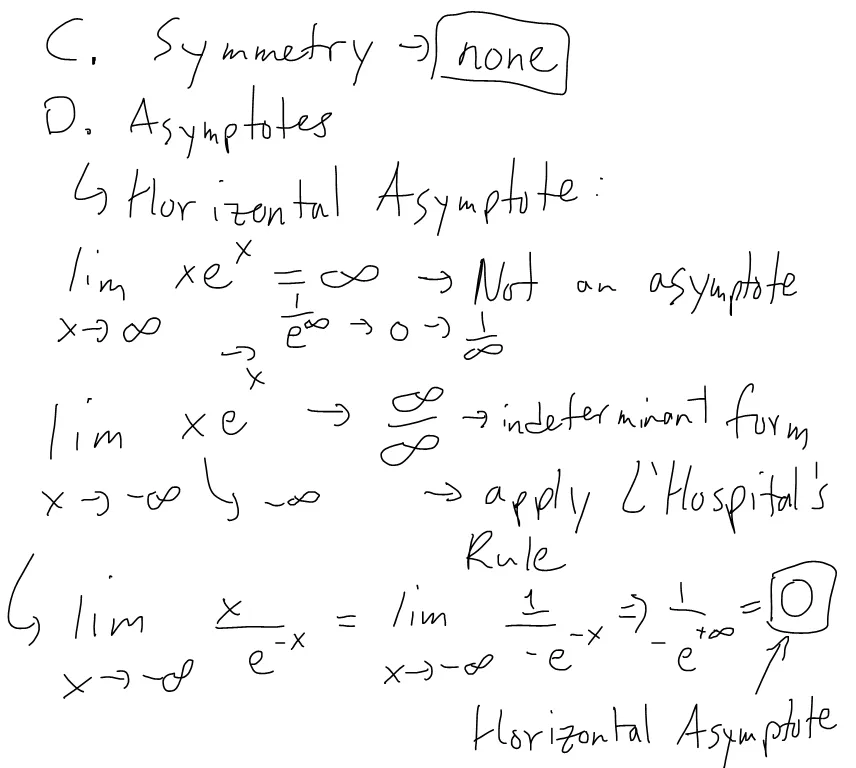 C. Symmetry → none
D. Asymptotes
↳ Horizontal Asymptote:
lim x→∞ xe^x = ∞ → Not an asymptote
→ 1/e^∞ → 0 → 1/∞
lim x→-∞ xe^x → ∞/∞ → indeterminant form
↳ -∞ → apply L'Hospital's
Rule
↳ lim x→-∞ x/e^-x = lim x→-∞ 1/-e^-x ⇒ 1/-e^+∞ = 0
Horizontal Asymptote